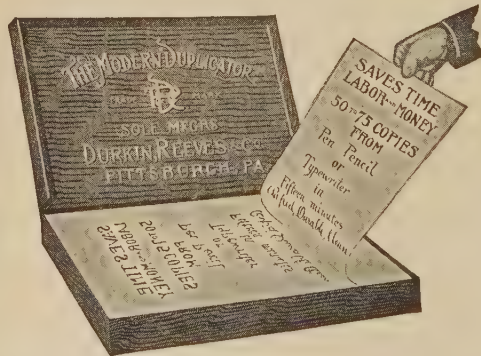 THE MODERN DUPLICATOR
DR
SOLE MFGRS
DURKIN, REEVES & CO.
PITTSBURGH, PA.
SAVES TIME
LABOR AND MONEY
50 TO 75 COPIES
FROM
Pen Pencil
or
Typewriter
in
Fifteen minutes